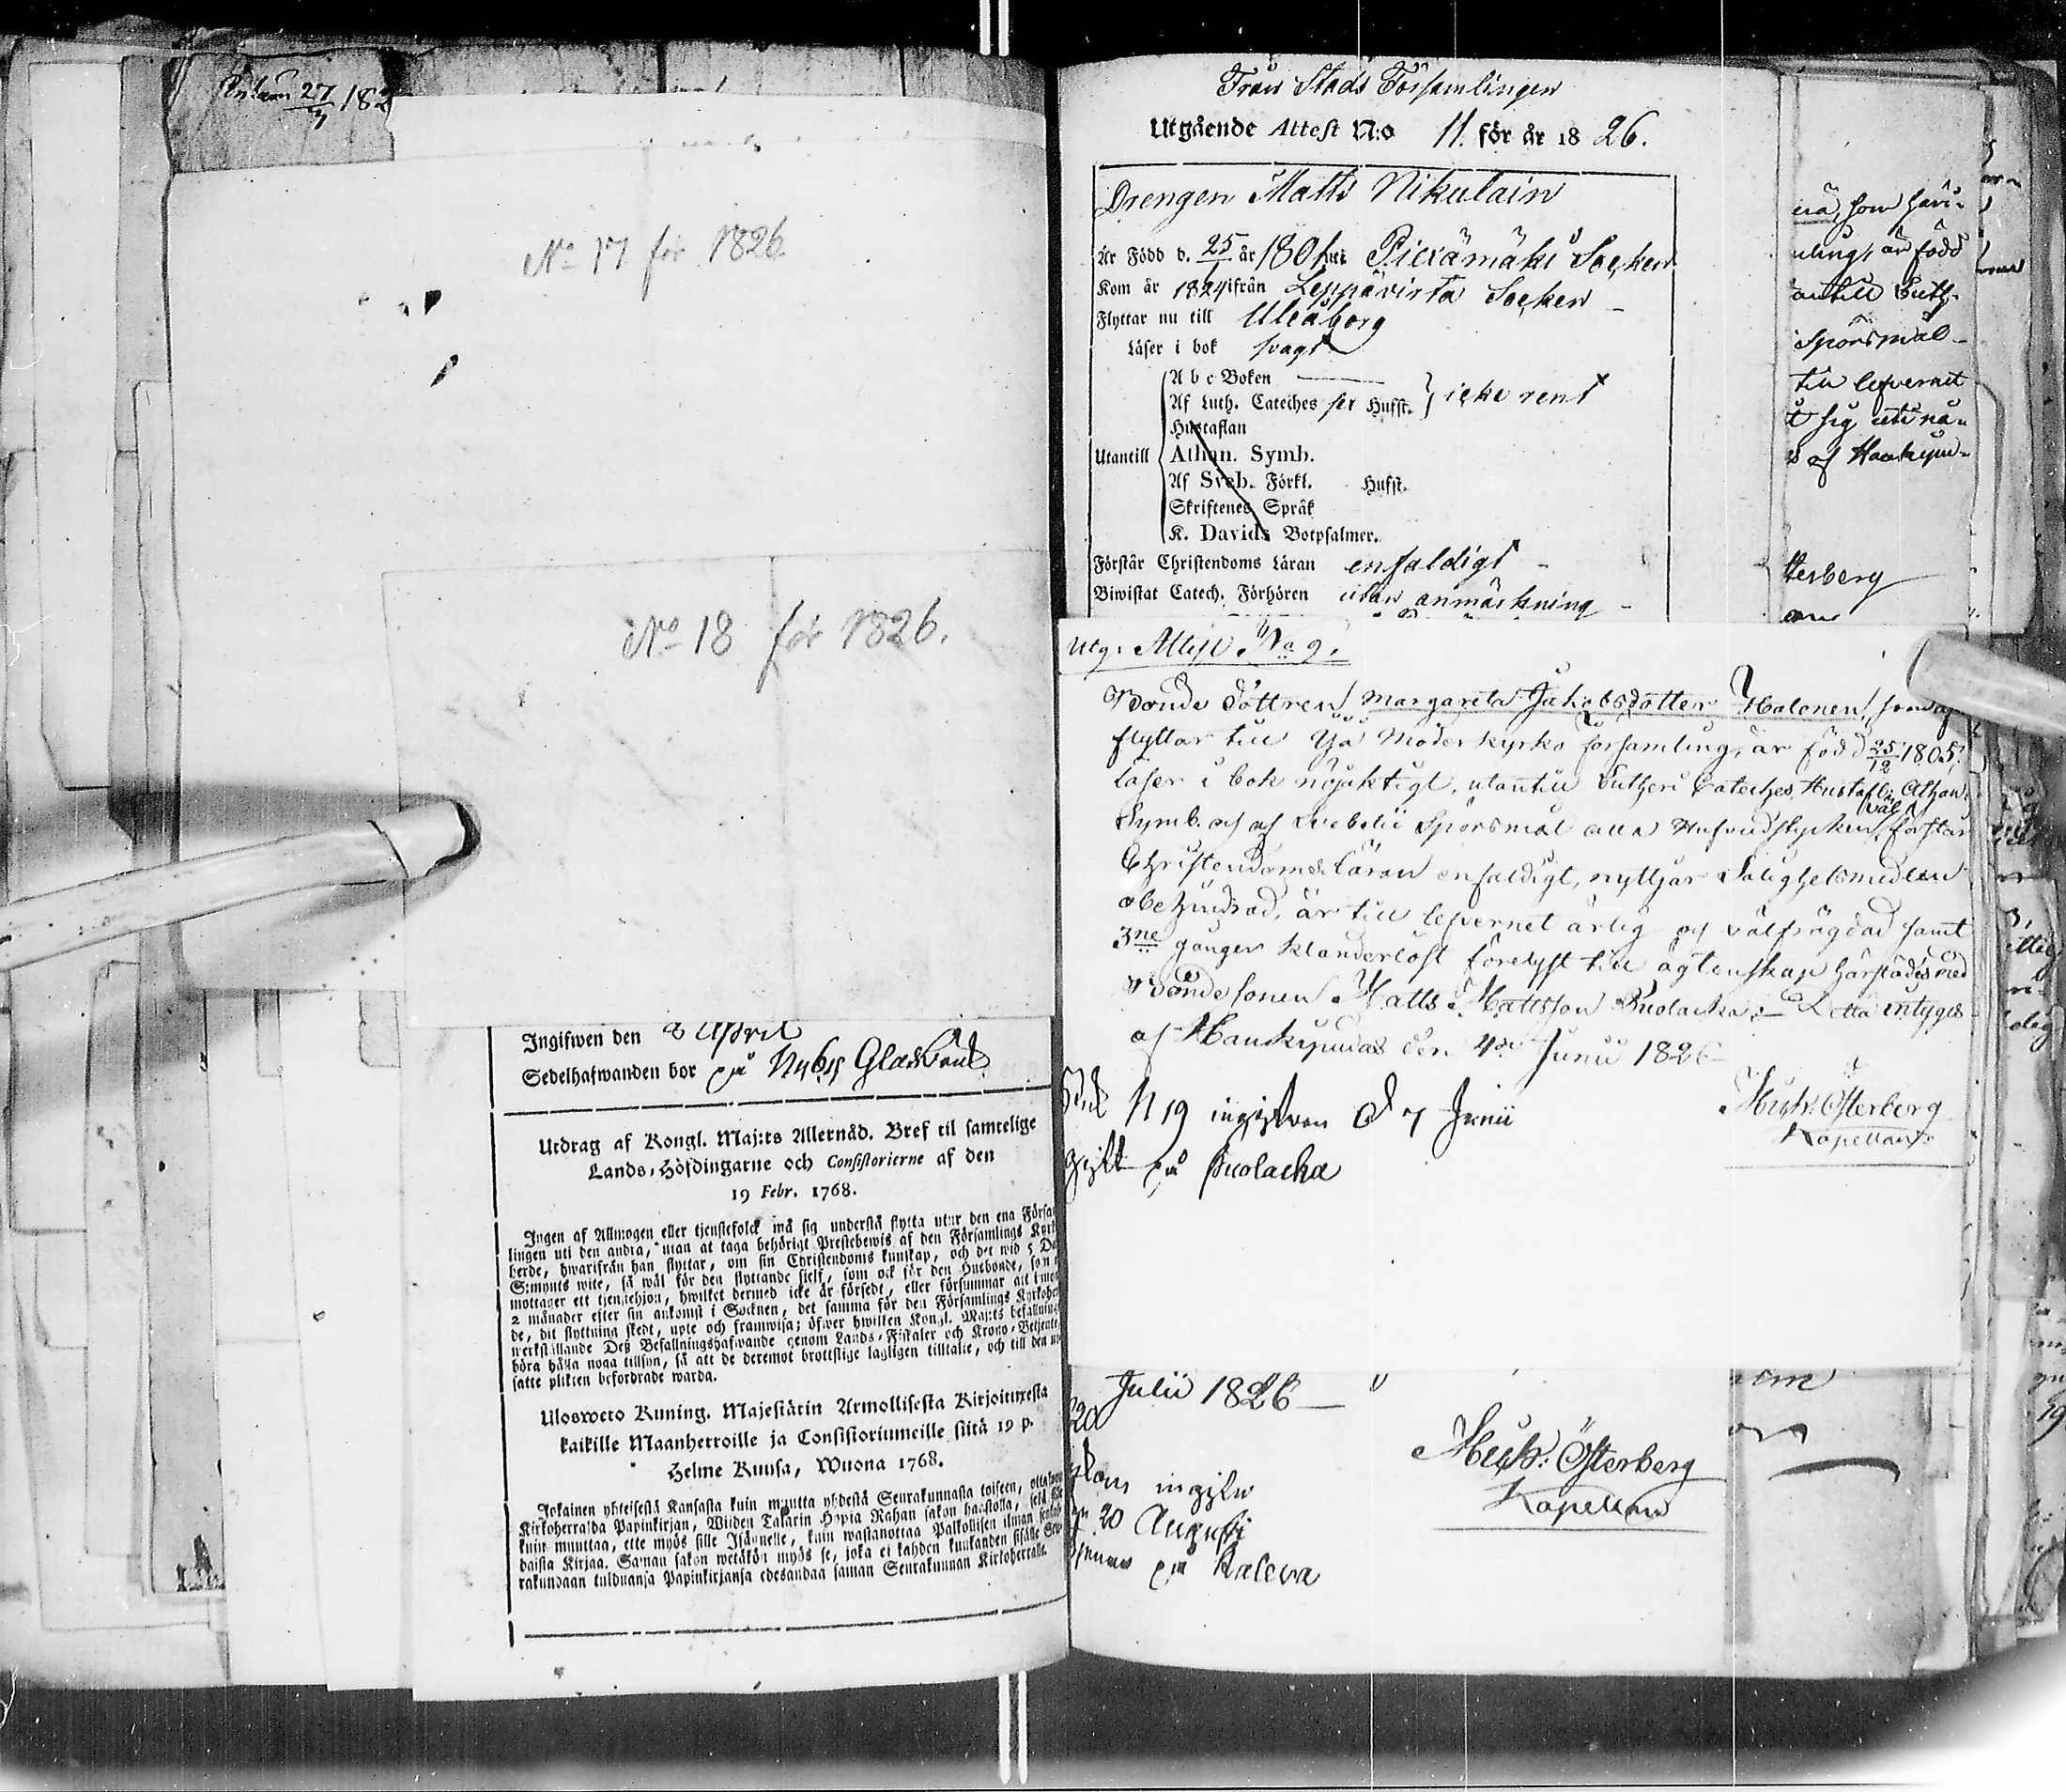 27/3 182
No 17 för 1826.
No 18 för 1826.
Ingifwen den 8 April
Sedelhafwanden bor på Nyby Glasbruk
Utdrag af Kongl. Maj:ts Allernåd. Bref til samtelige
Lands-Höfdingarne och Consistorierne af den
19 Febr. 1768.
Ingen af Allmogen eller tjenstefolck må sig understå flytta utur den ena Försam
lingen uti den andra, utan at taga behörigt Prestebewis af den Församlings Kyrk
herde, hwarifrån han flyttar, om sin Christendoms kunskap, och det wid 5 Da
S:mynts wite, så wäl för den flyttande sjelf, som ock för den Husbonde, som
mottager ett tjenstehjon, hwilket dermed icke är försedt, eller försummar att i
2 månader efter sin ankomst i Socknen, det samma för den Församlings Kyrkoher
de, dit flyttning skedt, upte och framwisa; öfwer hwilken Kongl. Maj:ts befallning
werkställande Deß Befallningshafwande genom Lands-Fiskaler och Krono-Betjente
böra hålla noga tillsyn, så att de deremot brottslige lagligen tilltalte, och till den ut
satte plikten befordrade warda.
Ulosweto Kuning. Majestätin Armollisesta Kirjoituxesta
kaikille Maanherroille ja Consistoriumeille siitä 19 p.
Helme Kuusa, Wuona 1768.
Jokainen yhteisestä Kansasta kuin muutta yhdestä Seurakunnasta toiseen, ottakoon
Kirkoherralda Papinkirjan, Wiiden Talarin Hopia Rahan sakon haastolla, sekä
kuin muuttaa, ette myös sille Isännelle, kuin wastanottaa Palkollisen ilman
daista Kirjaa. Saman sakon wetäkön myös se, joka ei kahden kuukauden sisälle Seu
rakundaan tulduansa Papinkirjansa edesandaa saman Seurakunnan Kirkoherralle.
Från Stads Församlingen
Utgående Attest N:o 11. för år 1826.
Drengen Matts Nikulain
Är Född d. 25 år 180 uti Piexämäki Socken
Kom år 1824 ifrån Leppävirta Socken
Flyttar nu till Uleåborg
Läser i bok svagt
Utantill
A b c Boken
Af Luth. Cateches Hufst. icke rent
Hustaflan
Athan. Symb.
Af Sveb. Förkl. Hufst.
Skriftenes Språk
K. Davids Botpsalmer.
Förstår Christendoms Läran enfaldigt
Biwistat Catech. Förhören utan anmärkning
Utg. Attest No 9.
Bonde Dottren Margareta Jakobsdotter Halonen, som
flyttar till Ijo Moderkyrko församling, är född 25/12 1805,
läser i bok nöjaktigt, utantill Lutheri Cateches, Hustafla, Athan.
Symb. och af Svebelii Spörsmål alla Hufvudstycken väl, förstår
Christendomsläran enfaldigt, nyttjar Salighetsmedlen
obehindrad, är till lefvernet ärlig och välfrägdad samt
3ne gånger klanderlöst förelyst till ägtenskap härstädes med
Bondesonen Matts Mattsson Puolacka; Detta intygas
af Haukipudas den 4de Junii 1826
Mich: Österberg
Kapellan.
N 19 ingifven d 7 Junii
gift på Puolacka
Julii 1826
Mich: Österberg
Kapellan
20
ingifv
20 Augusti
på Kalewa
som
född
Luth.
Spörsmål
till lefvernet
sig uti
af Haukipu
terberg